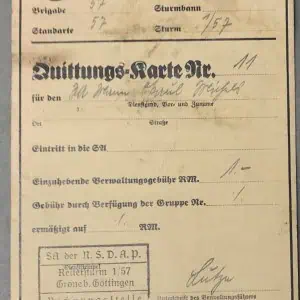 Brigade 57 Sturmbann
Standarte 57 Sturm 1/57
Quittungs-Karte Nr. 11
für den
Dienstgrad, Vor- und Zuname
Ort Straße
Eintritt in die SA
Einzuhebende Verwaltungsgebühr RM. 1.-
Gebühr durch Verfügung der Gruppe Nr. 1
ermäßigt auf 1. RM.
SA der N.S.D.A.P.
Reitersturm 1/57
Grone b. Göttingen
Unterschrift des Verwaltungsführers